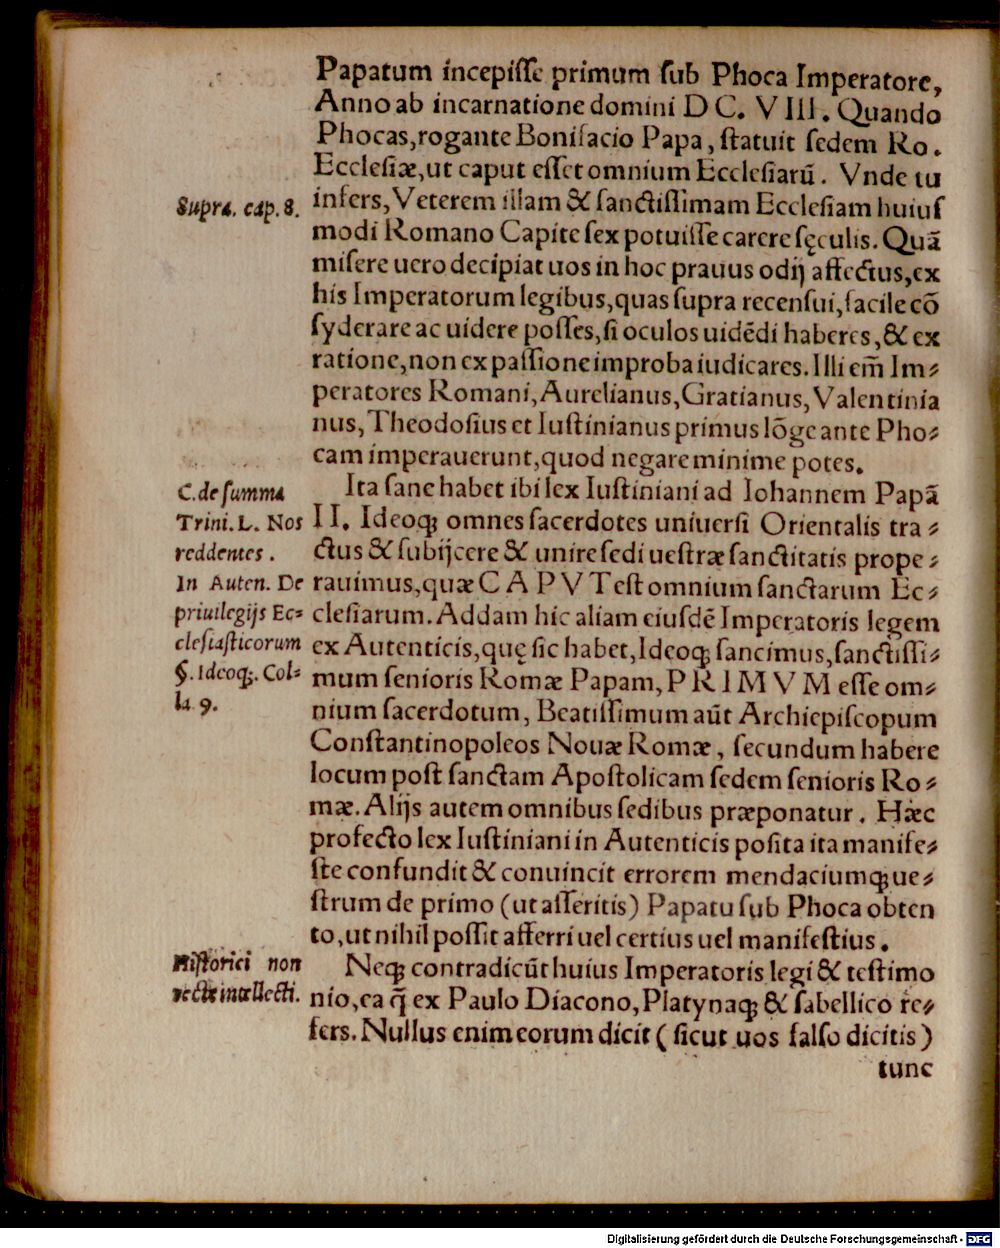 Papatum incepiſſe primum ſub Phoca Imperatore,
Anno ab incarnatione domini D C. V III. Quando
Phocas, rogante Bonifacio Papa, ſtatuit ſedem Ro.
Eccleſiæ, ut caput eſſet omnium Eccleſiarũ. Vnde tu
Supra. cap. 8.
infers, Veterem illam & ſanctiſſimam Eccleſiam huiuſ
modi Romano Capite ſex potuiſſe carere ſęculis. Quã
miſere uero decipiat uos in hoc prauus odij affectus, ex
his Imperatorum legibus, quas ſupra recenſui, facile cõ
ſyderare ac uidere poſſes, ſi oculos uidẽdi haberes, & ex
ratione, non ex paſſione improba iudicares. Illi em̃ Im⸗
peratores Romani, Aurelianus, Gratianus, Valentinia
nus, Theodoſius et Iuſtinianus primus lõge ante Pho⸗
cam imperauerunt, quod negare minime potes.
C. de ſumma
Trini. L. Nos
reddentes.
In Auten. De
priuilegijs Ec⸗
cleſiaſticorum
§. Ideoq́;. Col⸗
la 9.
Ita ſane habet ibi lex Iuſtiniani ad Iohannem Papã
II. Ideoq́; omnes ſacerdotes uniuerſi Orientalis tra⸗
ctus & ſubijcere & unire ſedi ueſtræ ſanctitatis prope⸗
rauimus, quæ C A P V T eſt omnium ſanctarum Ec⸗
cleſiarum. Addam hic aliam eiuſdẽ Imperatoris legem
ex Autenticis, quę ſic habet, Ideoq́; ſancimus, ſanctiſſi⸗
mum ſenioris Romæ Papam, P R I M V M eſſe om⸗
nium ſacerdotum, Beatiſſimum aũt Archiepiſcopum
Conſtantinopoleos Nouæ Romæ, ſecundum habere
locum poſt ſanctam Apoſtolicam ſedem ſenioris Ro⸗
mæ. Alijs autem omnibus ſedibus præponatur. Hæc
profecto lex Iuſtiniani in Autenticis poſita ita manife⸗
ſte confundit & conuincit errorem mendaciumq́; ue⸗
ſtrum de primo (ut aſſeritis) Papatu ſub Phoca obten
to, ut nihil poſſit afferri uel certius uel manifeſtius.
Hiſtorici non
recte intellecti.
Neq́; contradicũt huius Imperatoris legi & teſtimo
nio, ea q̃ ex Paulo Diacono, Platynaq́; & ſabellico re⸗
fers. Nullus enim eorum dicit (ſicut uos falſo dicitis)
tunc
Digitalisierung gefördert durch die Deutsche Forschungsgemeinschaft - DFG